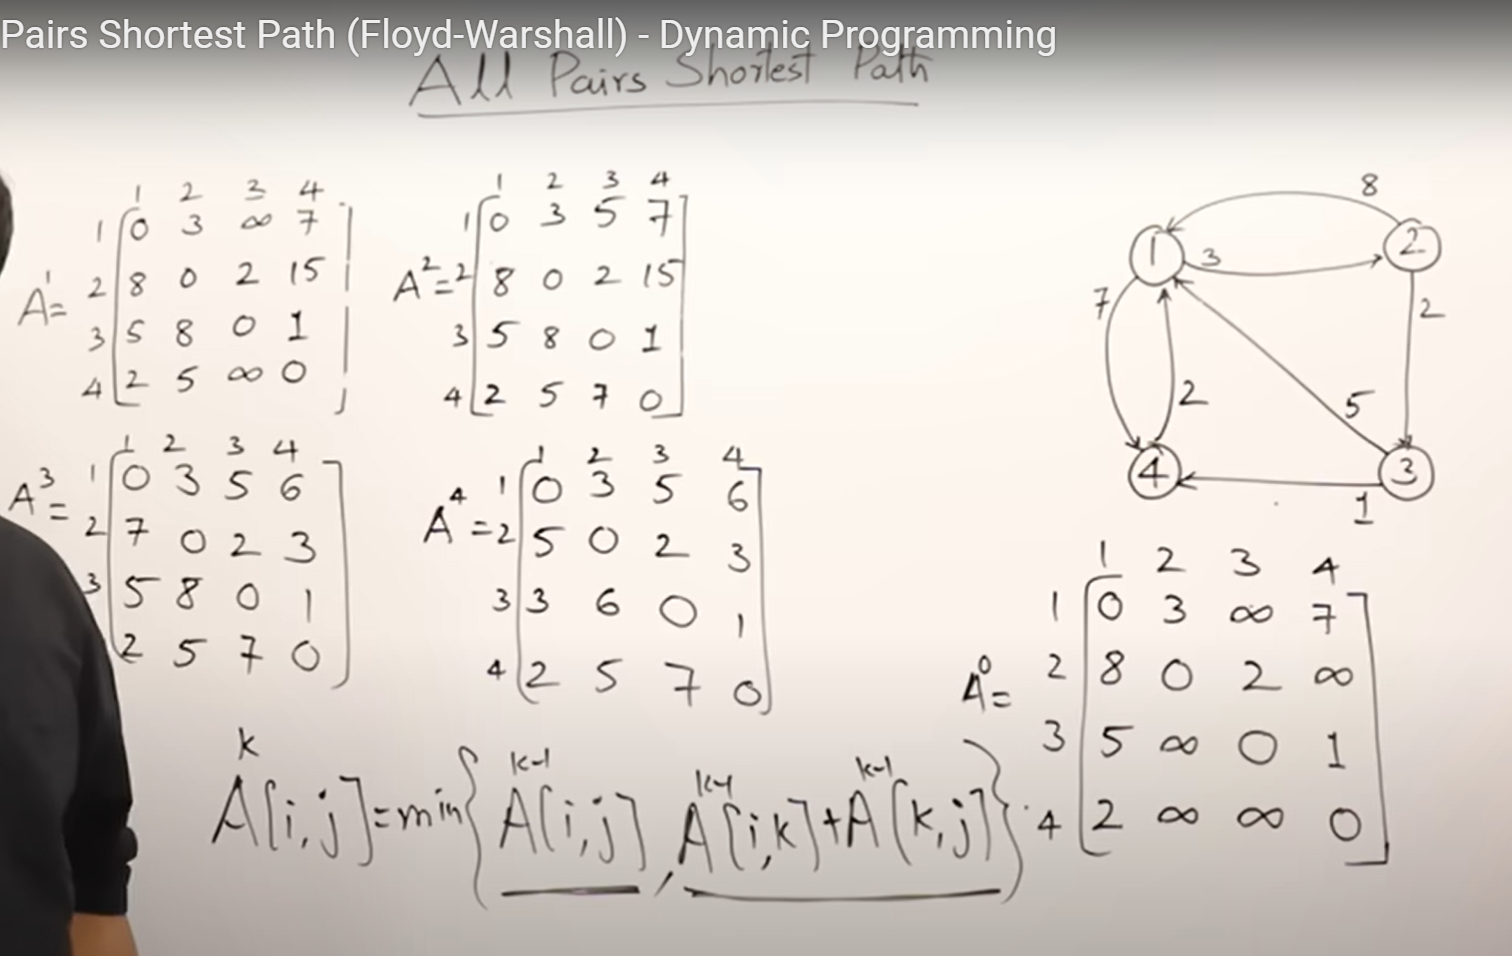 Pairs Shortest Path (Floyd-Warshall) - Dynamic Programming
All Pairs Shortest Path
1 2 3 4
1 0 3 ∞ 7
A¹= 2 8 0 2 15
3 5 8 0 1
4 2 5 ∞ 0
1 2 3 4
1 0 3 5 7
A²= 2 8 0 2 15
3 5 8 0 1
4 2 5 7 0
1 2 3 4
1 0 3 5 6
A³= 2 7 0 2 3
3 5 8 0 1
2 5 7 0
1 2 3 4
1 0 3 5 6
A⁴= 2 5 0 2 3
3 3 6 0 1
4 2 5 7 0
8
1 3 2
7 2
2 5
4 3
1
1 2 3 4
1 0 3 ∞ 7
A⁰= 2 8 0 2 ∞
3 5 ∞ 0 1
4 2 ∞ ∞ 0
k k-1 k-1 k-1
A[i,j]=min{A[i,j], A[i,k]+A[k,j]}